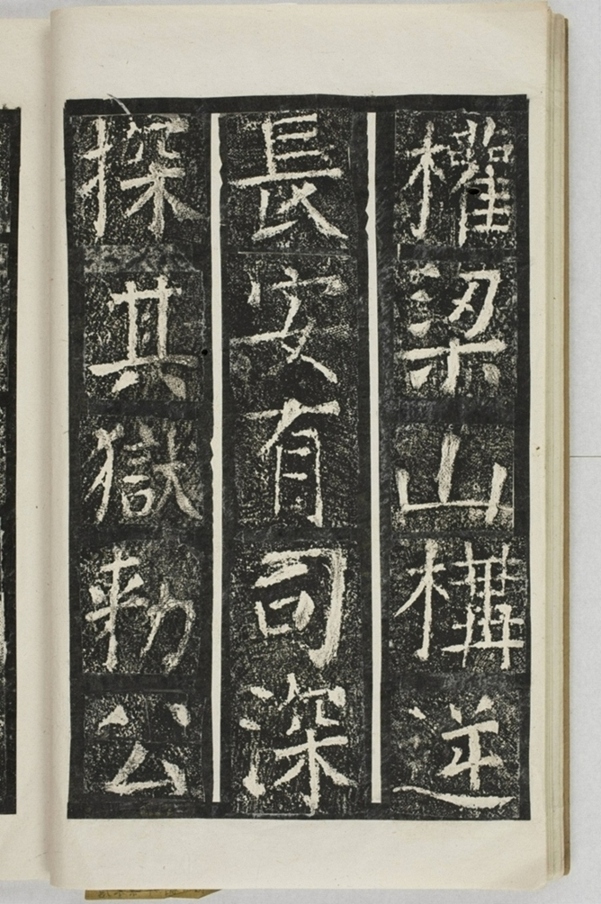 權梁山構逆
長安有司深
探其獄勑公